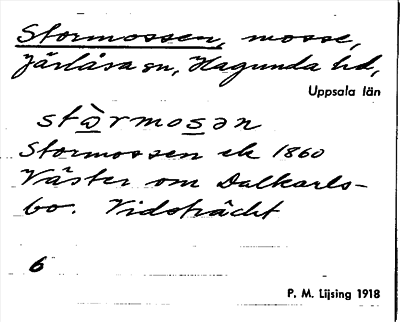 Stormossen, mosse,
Järlåsa sn, Hagunda hd,
Uppsala län
stòrmosən
Stormossen ek 1860
Väster om Dalkarls-
bo. Vidsträckt
6
P. M. Lijsing 1918